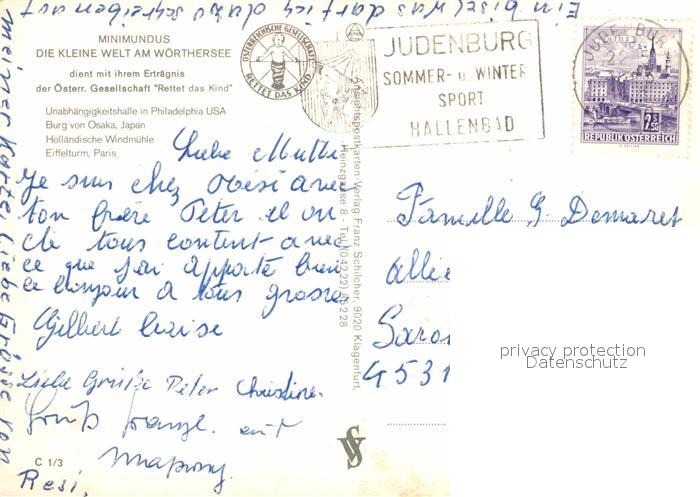 Ein bisel was darf ich dazu schreiben auf
meiner Karte. Liebe Grüsse von
Resi.
MINIMUNDUS
DIE KLEINE WELT AM WÖRTHERSEE
dient mit ihrem Erträgnis
der Österr. Gesellschaft "Rettet das Kind"
Unabhängigkeitshalle in Philadelphia USA
Burg von Osaka, Japan
Holländische Windmühle
Eiffelturm, Paris
ÖSTERREICHISCHE GESELLSCHAFT
RETTET DAS KIND
JUDENBURG
SOMMER- u. WINTER
SPORT
HALLENBAD
JUDENBURG
2,50
REPUBLIK ÖSTERREICH
Liebe
Je suis chez Resi avec
ton frère Peter et
tous content avec
ce que j'ai apporté bien
le bonjour a tous grosse
Gilbert
Liebe Grüße Peter Christine.
Gruß
C 1/3
Ansichtspostkarten-Verlag Franz Schilcher, 9020 Klagenfurt,
Heinzgasse 8 - Tel. (04222) 85228
Familie G. Demaret
4531
privacy protection
Datenschutz